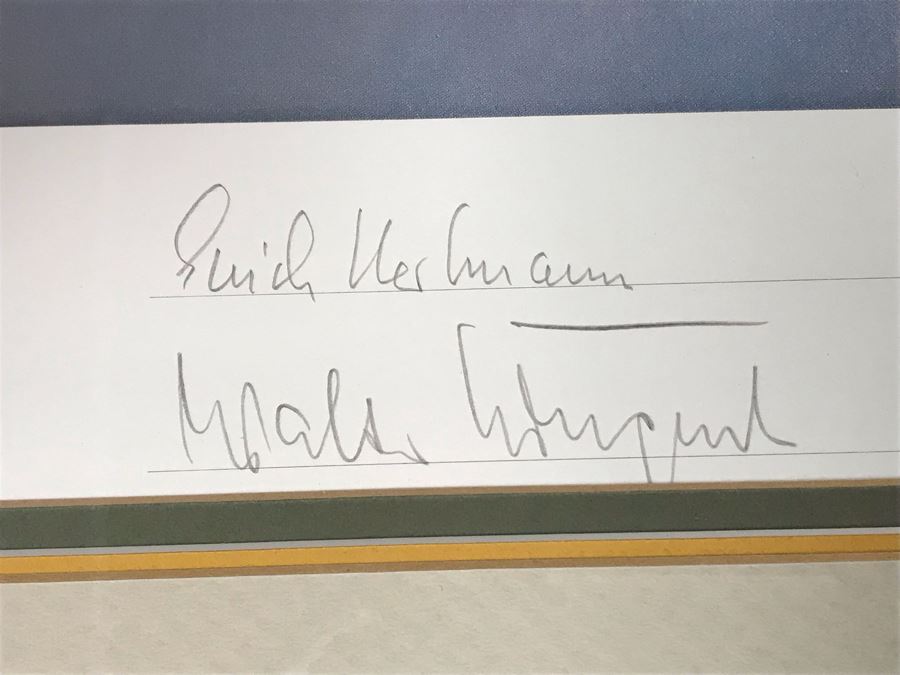 Erich Hartmann
Walter Krupinski